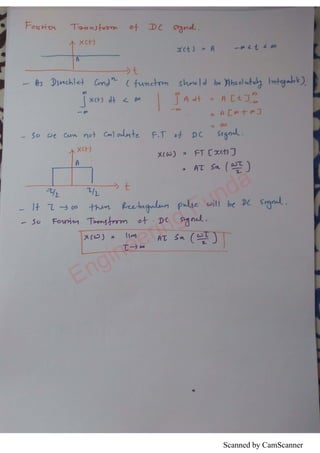 Fourier Transform of DC signal.
x(t)
A
t
x(t) = A -∞ < t < ∞
- As Dirichlet Condⁿ (function should be Absolutely Integrable)
∫_{-∞}^{∞} x(t) dt < ∞ | ∫_{-∞}^{∞} A dt = A [t]_{-∞}^{∞}
= A [∞ + ∞]
= ∞
- So we can not Calculate F.T of DC signal.
x(t)
A
-τ/2 τ/2 t
x(ω) = FT [x(t)]
= Aτ Sa (ωτ/2)
- If τ → ∞ then Rectangular pulse will be DC signal.
- So Fourier Transform of DC signal.
x(ω) = lim_{τ→∞} Aτ Sa (ωτ/2)
Engineering Funda
Scanned by CamScanner